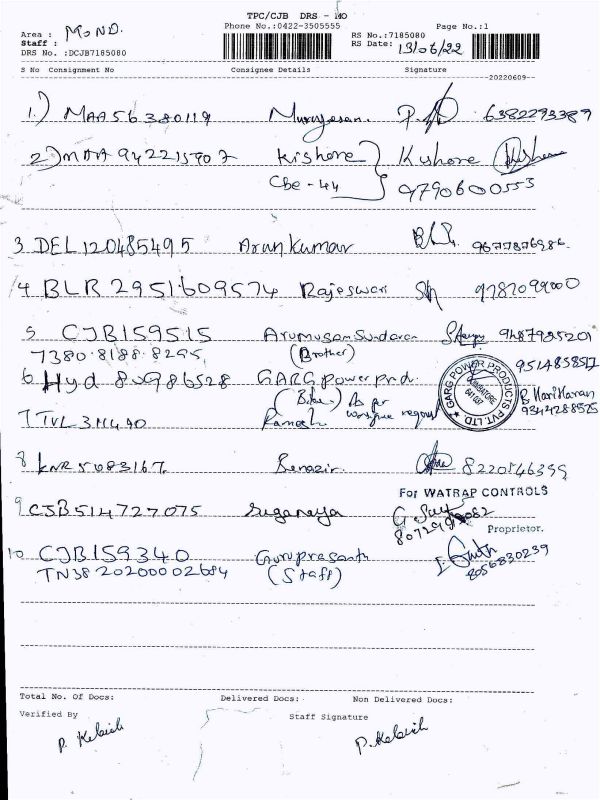 TPC/CJB DRS - MO
Phone No.:0422-3505555 Page No.:1
Area : MOND.
Staff : RS No.:7185080
DRS No. :DCJB7185080 RS Date: 13/06/22
S No Consignment No Consignee Details Signature
20220609
1.) MAA56380119 Murugesan. 6382293389
2.) MAA 942215902 Kishore Kishore
Cbe-44 9790600553
3 DEL120485495 Arun kumar 9677876986
4 BLR 2951609574 Rajeswari 9787099000
5 CJB159515 Arumugam Sundaram 9487925201
7380.8188.8295 (Brother)
6 Hyd 80986528 GARG Power prd. 9514858517
GARG POWER PRODUCTS PVT. LTD.
COIMBATORE
641 037
(Bike) As per Hariharan
7 TVL 311490 Ramesh 9344288525
8 KNR 5083167 Benazir. 8220546399
For WATRAP CONTROLS
9 CJB514727075 Suganaya
Proprietor.
10 CJB159340 Guruprasanth
TN38 20200002684 (Staff) 8056830239
Total No. Of Docs: Delivered Docs: Non Delivered Docs:
Verified By Staff Signature